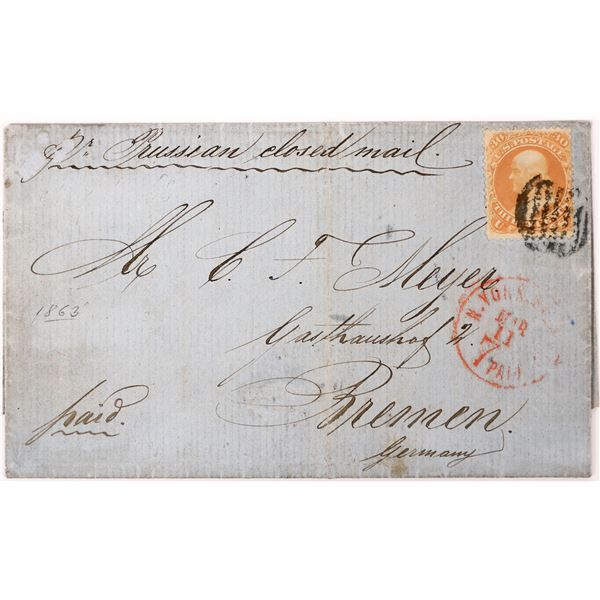 pr. Prussian closed mail.
30 30
U.S. POSTAGE
Mr C. F. Meyer
1863
Gasthaushof 2.
N. YORK
MAR
11
7
PAID
paid.
Bremen.
Germany